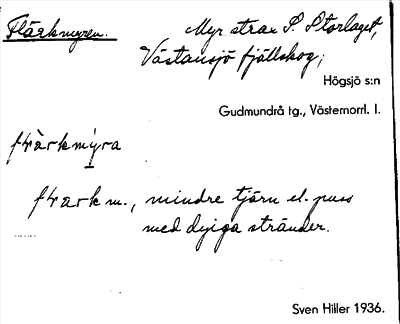 Fläckmyren.
Myr strax S. Storlaget,
Västansjö fjällskog;
Högsjö s:n
Gudmundrå tg., Västernorrl. l.
mindre tjärn el. puss
med dyiga stränder.
Sven Hiller 1936.